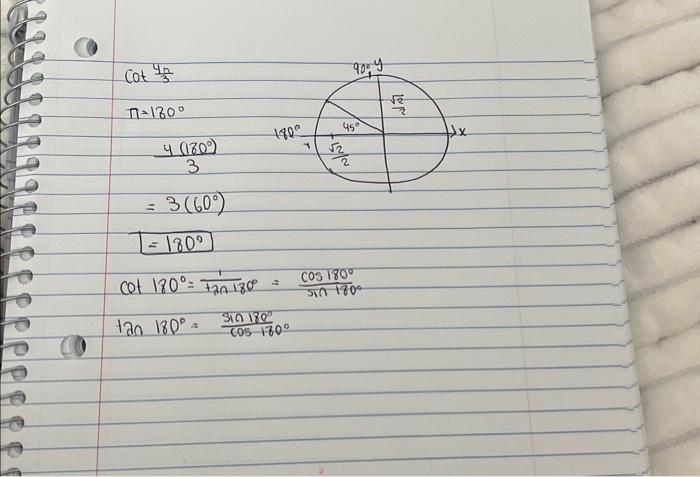 cot 4π/3
π=180°
4(180°)/3
= 3(60°)
= 180°
cot 180° = 1/tan 180° = cos 180°/sin 180°
tan 180° = sin 180°/cos 180°
90° y
√2/2
180°
45°
x
√2/2